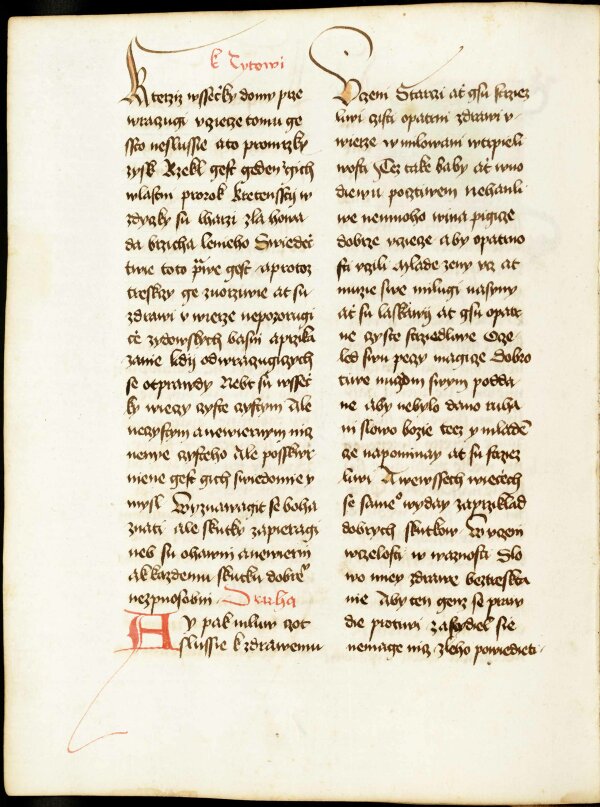 k Tytowi
Kterziz wssěcky domy prze
wrazugi vczieze tomu ge
ssto neslussie ato promrzky
zysk Rzekl gest geden zgich
wlastni prorok kretenssky w
zdyczky su lharzi zla howa
da brzicha leneho Swiedec
twie toto prwe gest aprotoz
tresktzy ge zuorziwie at su
zdrawi v wierze nepozorugi
cze zydowskych basni aprzika
zanie lidij odwrazugiczych
se otprawdy Nebt su wssec
ky wieczy czyste czystym Ale
neczystym anewiernym nicz
nenye czysteho Ale posskwr
niene gest gich swiedomie y
mysl Wyznawagit se boha
znati ale skutky zapieragi
neb su ohawni anewierni
ak kazdemu skutku dobre°
nezpuosobni Druha
Ty pak mluw czoz
slussie k zdrawemu
Vczeni Starzi at gsu strziez
liwi czisti opatrni zdrawi v
wierze w milowani wtrpieli
wosti Jez take baby at wuo
diewu poczwem nehanli
we nemnoho wina pigicze
dobrze vczicze aby opatrno
sti vczili Mlade zeny ucz at
muzie swe milugi nasyny
at su laskawy at gsu opatr
ne czyste strziedliwe Cze
led swu peczy magicze dobro
tiwe muzom swym podda
ne aby nebylo dano ruha
ni slowo bozie teez y mladen
ze napominay at su strziez
liwi A wewssech wiecech
se same° wyday zaprziklad
dobrych skutkow W vczeni
wczelosti w waznosti Slo
wo miey zdrawe beztreskta
nie Aby ten genz se praw
die protiwi zastydiel sie
nemage nicz zleho powiedieti